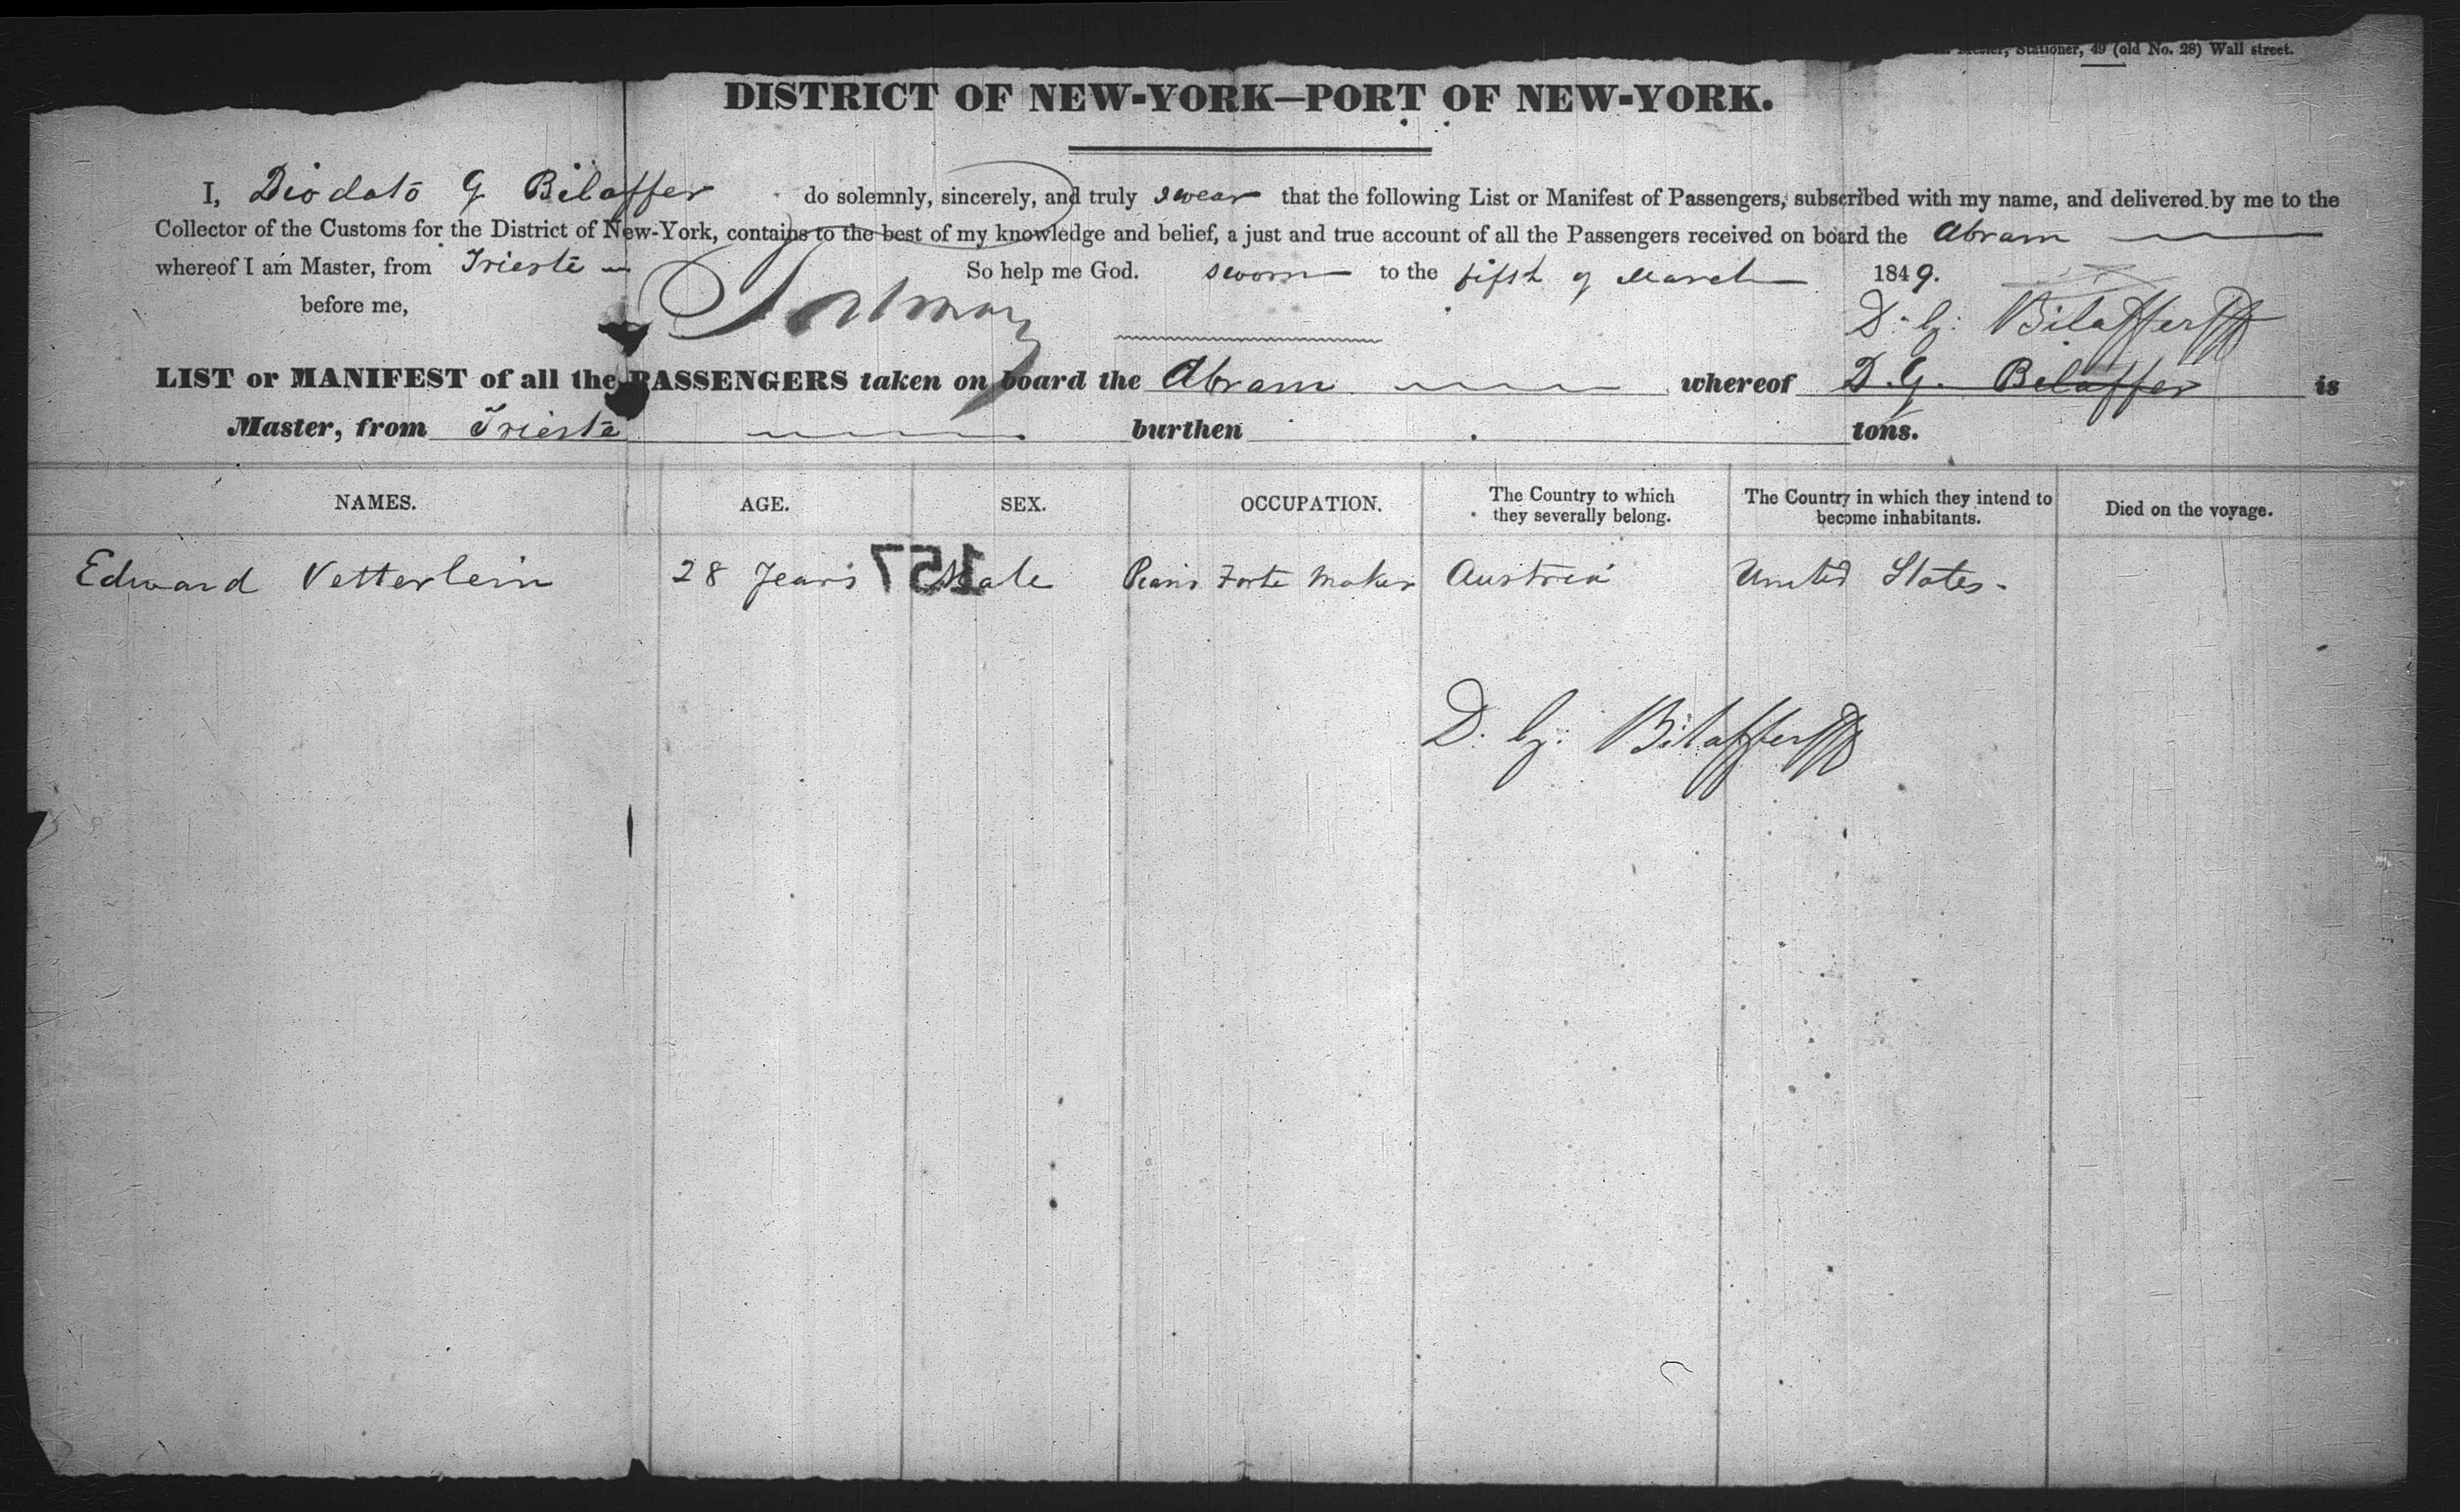 Stationer, 49 (old No. 28) Wall street.
DISTRICT OF NEW-YORK—PORT OF NEW-YORK.
I, Diodato G Bilaffer do solemnly, sincerely, and truly swear that the following List or Manifest of Passengers, subscribed with my name, and delivered by me to the
Collector of the Customs for the District of New-York, contains to the best of my knowledge and belief, a just and true account of all the Passengers received on board the Abram
whereof I am Master, from Trieste So help me God. sworn to the fifth of March 1849.
before me, D. G. Bilaffer
LIST or MANIFEST of all the PASSENGERS taken on board the Abram whereof D. G. Bilaffer is
Master, from Trieste burthen tons.
NAMES. AGE. SEX. OCCUPATION. The Country to which they severally belong. The Country in which they intend to become inhabitants. Died on the voyage.
Edward Vetterlein 28 Years Male Piano Forte Maker Austria United States.
157
D. G. Bilaffer